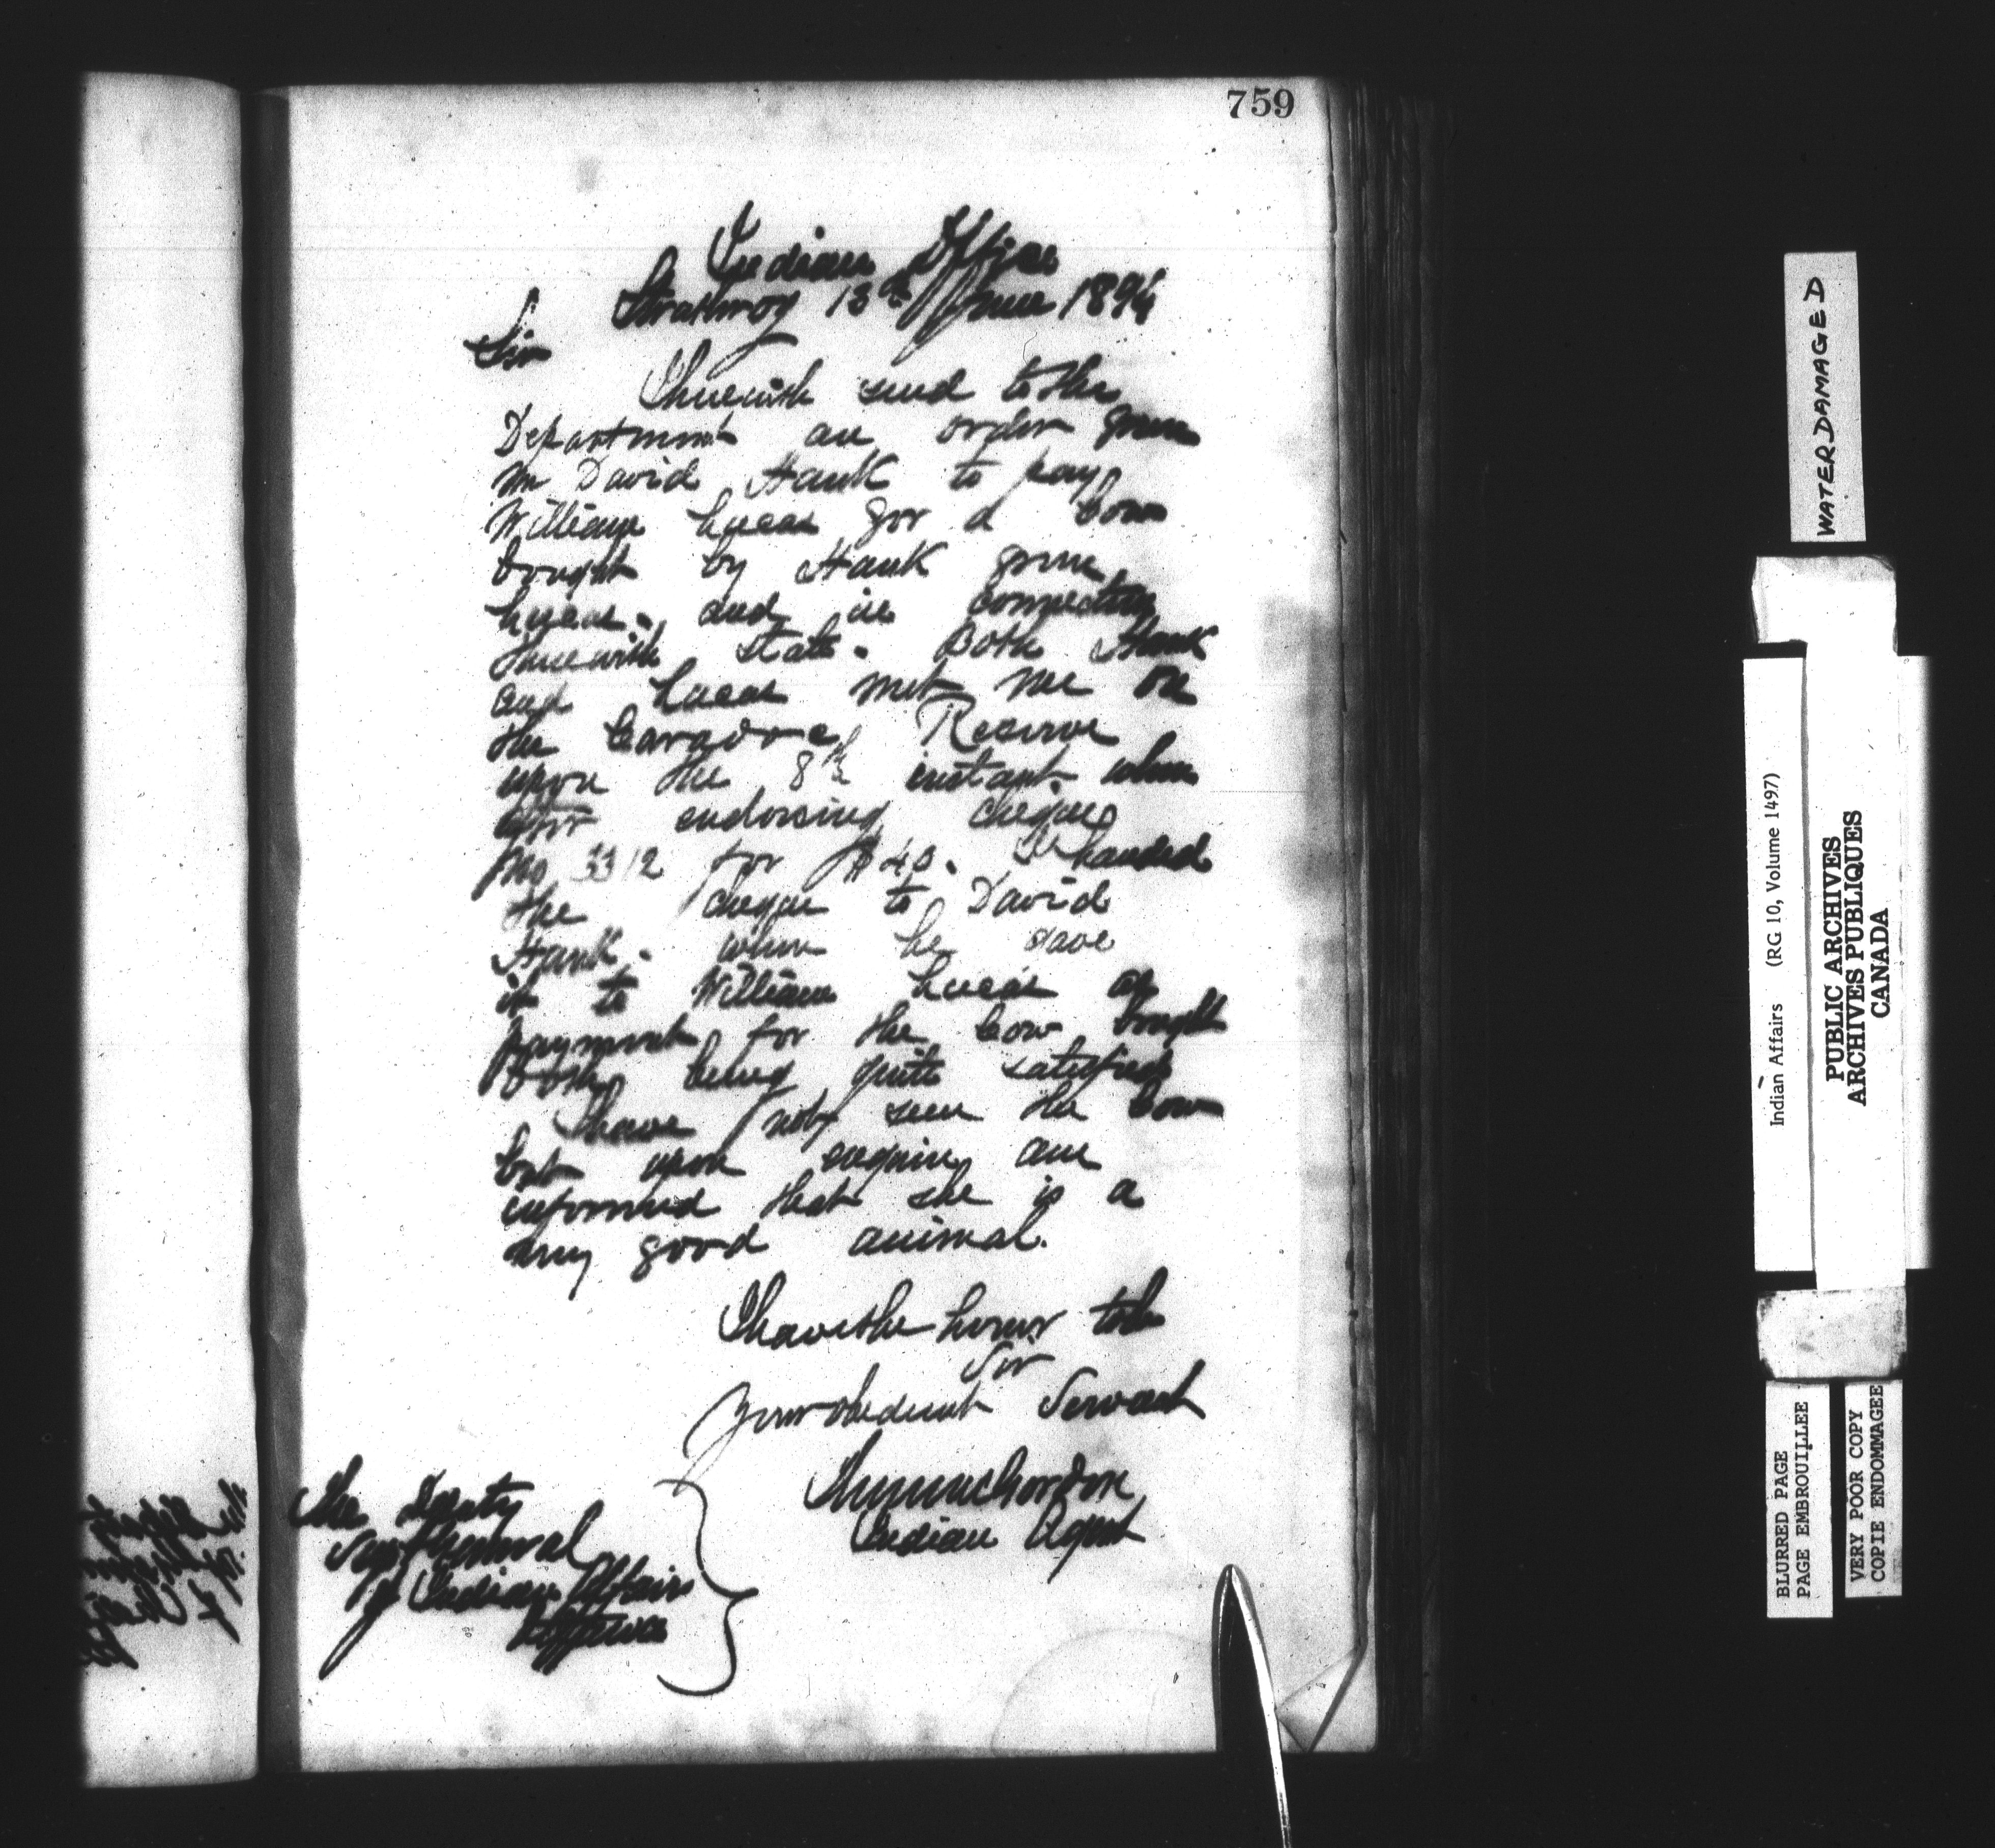 759
Indian Office
Strathroy 13th June 1894
Sir
I herewith send to the
Department an order from
Mr David Hank to pay
William Lucas for a Cow
bought by Hank from
Lucas. and in connection
herewith state. Both Hank
and Lucas met me on
the Caradoc Reserve
upon the 8th instant when
after endorsing cheque
No 3312 for $40. I handed
the cheque to David
Hank. when he gave
it to William Lucas as
payment for the Cow bought
both being quite satisfied
I have not seen the Cow
but upon enquiry am
informed that she is a
very good animal.
I have the honor to be
Sir
Your obedient Servant
Gordon
Indian Agent
The Deputy
Sup General
of Indian Affairs
Ottawa
WATER DAMAGED
Indian Affairs (RG 10, Volume 1497)
PUBLIC ARCHIVES
ARCHIVES PUBLIQUES
CANADA
BLURRED PAGE
PAGE EMBROUILLEE
VERY POOR COPY
COPIE ENDOMMAGEE